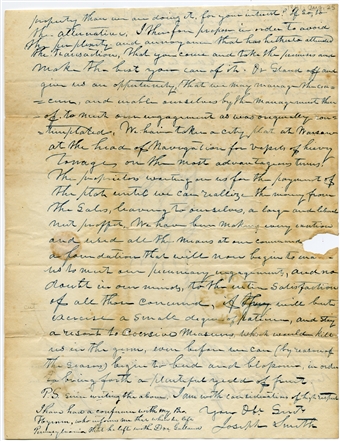 property than we are doing it, for your interest?
the alternative, I therefore propose in order to avoid
the perplexity and annoyance that has hitherto attended
the transaction, that you come and take the premises and
make the best you can of it. Or stand off and
give us an opportunity, that we may manage the con
cern, and enable ourselves by the management there
of, to meet our engagements as was originally con
templated. We have taken a city plat at Warsaw
at the head of Navigation for vessels of heavy
tonage on the most advantageous terms.
The proprietors waiting on us for the payment of
the plat until we can realize the money from
the Sales, leaving to ourselves, a large and liberal
net profit. We have been making every exertion
and used all the means at our command to
a foundation that will now begin to
us to meet our pecuniary engagements, and no
doubt in our minds, to the entire Satisfaction
of all those concerned, if they will but
exercise a small degree of patience, and stay
a resort to coercive Measures which would kill
us in the germ, even before we can (by reason of
the season) begin to bud and blossom, in order
to bring forth a plentiful yield of fruit.
P.S. since writing the above I am with considerations of high respect
I have had a conference with my
Your Obt. Servt.
who informs me that while he
Joseph Smith
Pennsylvania